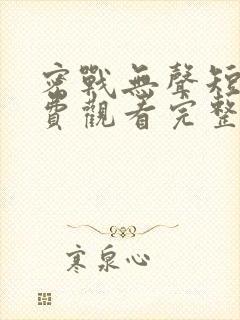 密戰無聲短
費觀看完整
寒泉心